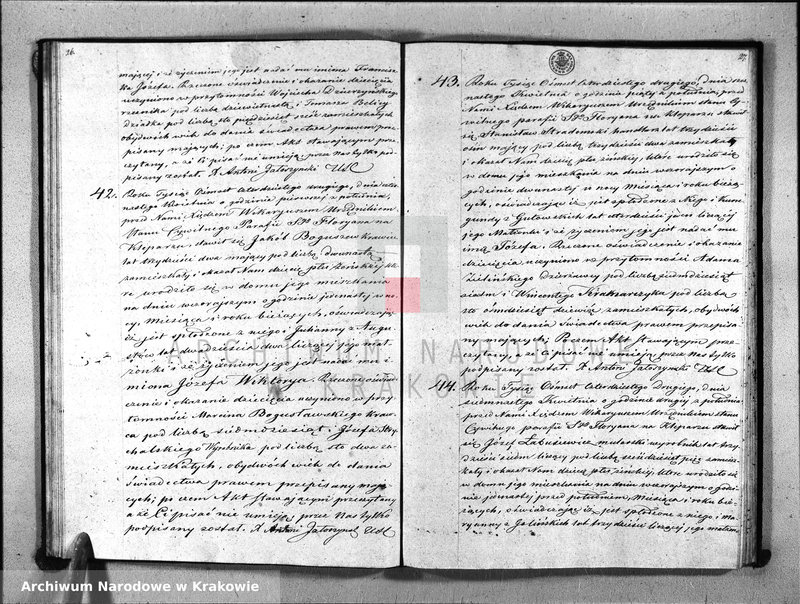 26.
mającej i że życzeniem jego jest nadać mu imiona Francisz-
ka Józefa. Rzeczone oświadczenie i okazanie dziecięcia
uczyniono w przytomności Wojciecha
pod liczbą dziewiętnastą i Tomasza
pod liczbą sto pięćdziesiąt sześć zamieszkałych
obydwóch wiek do dania świadectwa prawem prze-
pisany mających; po czem Akt stawającym prze-
czytany, a że Ci pisać nie umieją przez Nas tylko pod-
pisany został. X Antoni Jatorzynski USC
42. Roku Tysiąc Ośmset Czterdziestego drugiego, dnia
Kwietnia o godzinie pierwszej z południa,
przed Nami Xiędzem Wikaryuszem Urzędnikiem
Stanu Cywilnego Parafii Sgo Floryana na
Kleparzu, stawił się Jakób Boguszewski
lat trzydzieści dwa mający pod liczbą dwunastą
zamieszkały i okazał Nam dziecię płci żeńskiej któ-
re urodziło się w domu jego mieszkania
na dniu wczorajszym o godzinie jedenastej w no-
cy, Miesiąca i roku bieżących, oświadczając
iż jest spłodzone z niego i Julianny z Augu-
stów lat dwadzieścia dwa liczącej jego mał-
żonki i że życzeniem jego jest nadać mu i-
miona Józefa Wiktorya. Rzeczone oświad-
czenie i okazanie dziecięcia uczyniono w przy-
tomności Marcina Bogusławskiego Kraw-
ca pod liczbą siedmdziesiąt i Józefa
Wyrobnika pod liczbą sto dwa za-
mieszkałych, obydwóch wiek do dania
świadectwa prawem przepisany mają-
cych; po czem Akt stawającym przeczytany
a że Ci pisać nie umieją, przez Nas tylko
podpisany został. X Antoni Jatorzynski USC
27.
43. Roku Tysiąc Ośmset Czterdziestego drugiego, dnia
Kwietnia o godzinie piątej z południa, przed
Nami Xiędzem Wikaryuszem Urzędnikiem stanu Cy-
wilnego parafii Sgo Floryana na Kleparzu stawił
się Stanisław Stradomski handlarz lat trzydzieści
ośm mający pod liczbą trzydzieści dwa zamieszkały
i okazał Nam dziecię płci żeńskiej, które urodziło się
w domu jego mieszkania na dniu wczorajszym o
godzinie dwunastej w nocy Miesiąca i roku bieżą-
cych, oświadczając iż jest spłodzone z Niego i Kune-
gundy z Gutowskich lat czterdzieści jeden liczącej
jego Małżonki i że życzeniem jego jest nadać mu
imię Józefa. Rzeczone oświadczenie i okazanie
dziecięcia uczyniono w przytomności Adama
Zielińskiego Dzierżawcy pod liczbą siedmdziesiąt
siedm i Wincentego Krakarczyka pod liczbą
sto ośmdziesiąt dziewięć zamieszkałych, obydwóch
wiek do dania świadectwa prawem przepisa-
ny mających. Poczem Akt stawającym prze-
czytany, a że Ci pisać nie umieją przez Nas tylko
podpisany został. X Antoni Jatorzynski USC
44. Roku Tysiąc Ośmset Czterdziestego Drugiego, dnia
siedmnastego Kwietnia o godzinie drugiej z południa
przed Nami Xiędzem Wikaryuszem Urzędnikiem stanu
Cywilnego parafii Sgo Floryana na Kleparzu stawił
się Józef Łabusiewicz mularski wyrobnik lat trzy-
dzieści siedm liczący pod liczbą sześćdziesiąt pięć zamiesz-
kały i okazał Nam dziecię płci żeńskiej, które urodziło się
w domu jego mieszkania na dniu wczorajszym o godzi-
nie jedenastej przed południem, Miesiąca i roku bie-
żących, oświadczając iż jest spłodzone z niego i Ma-
ryanny z Galińskich lat trzydzieści liczącej jego małżon-
ARCHIWUM NARODOWE
W KRAKOWIE
Archiwum Narodowe w Krakowie